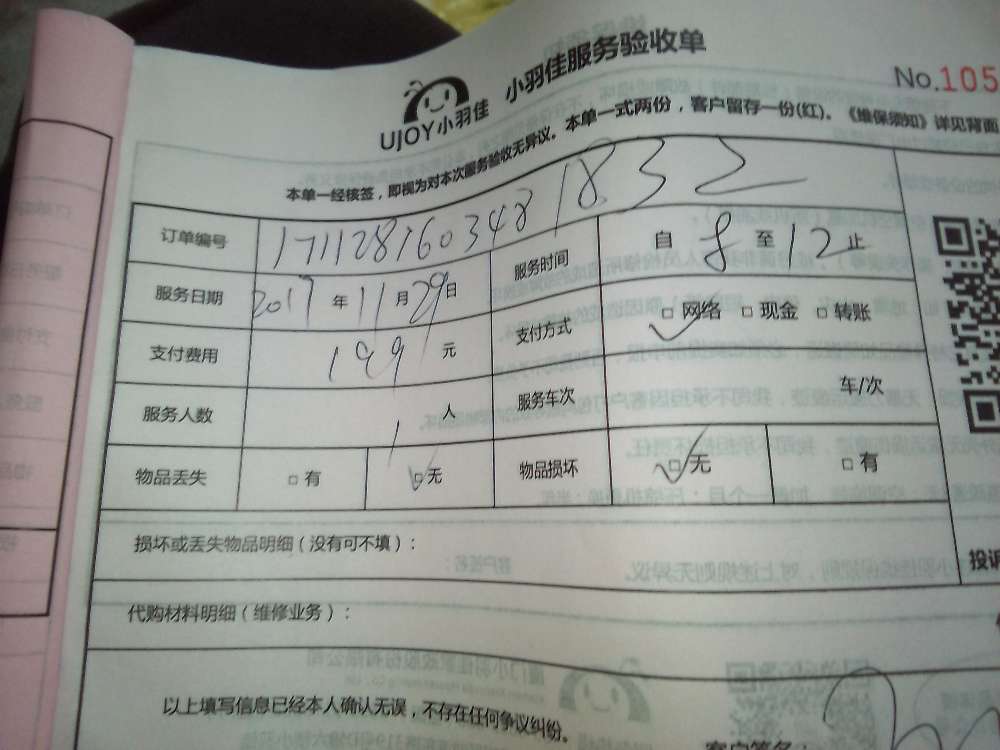 小羽佳服务验收单
UJOY小羽佳
No.105
本单一经核签，即视为对本次服务验收无异议。本单一式两份，客户留存一份(红)。《维保须知》详见背面
订单编号 171128160348183 服务时间 自 8 至 12 止
服务日期 2017 年 11 月 29 日 支付方式 □ 网络 □ 现金 □ 转账
支付费用 199 元
服务人数 1 人 服务车次 车/次
物品丢失 □ 有 □ 无 物品损坏 □ 无 □ 有
损坏或丢失物品明细（没有可不填）：
投诉
代购材料明细（维修业务）：
以上填写信息已经本人确认无误，不存在任何争议纠纷。
客户签名：